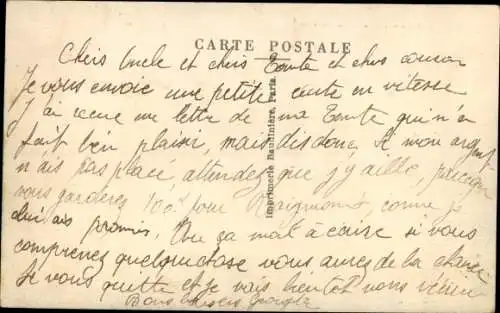 CARTE POSTALE
Chers Oncle et chers Tante et chers cousin
Je vous envoie une petite carte en vitesse
J'ai une lettre de ma Tante qui m'a
fait bien plaisir, mais dis donc si mon argent
n'ais pas placé, attendez que j'y aille,
vous garderez 100 pour comme je
promis. ça mal à écrire si vous
comprenez quelquechose vous aurez de la chance
Je vous quitte et je vais bientôt vous
Bons baisers
Imprimerie Baudinière, Paris